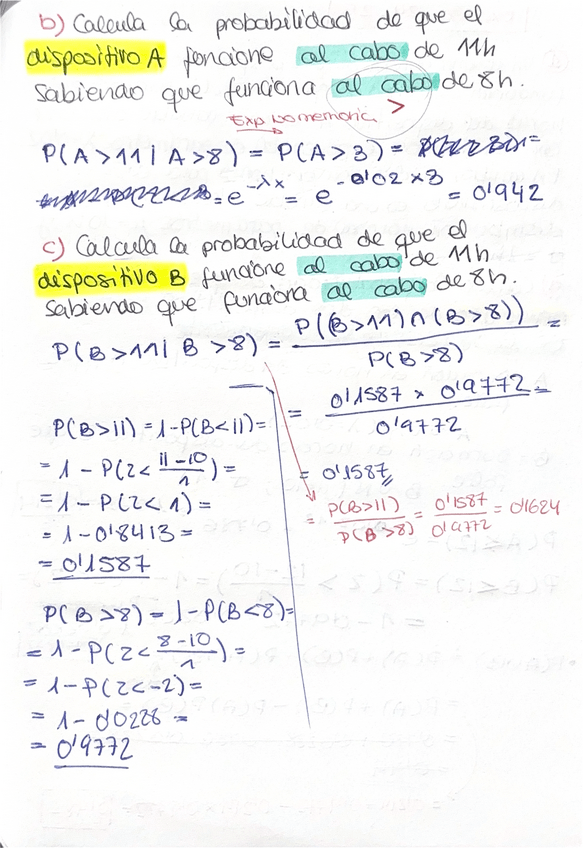 b) Calcula la probabilidad de que el
dispositivo A funcione al cabo de 11h
sabiendo que funciona al cabo de 8h.
Exp no memoria >
P(A>11 | A>8) = P(A>3) = =
= e^-λx = e^-0'02 x 3 = 0'942
c) Calcula la probabilidad de que el
dispositivo B funcione al cabo de 11h
sabiendo que funciona al cabo de 8h.
P(B>11 | B>8) = P((B>11)∩(B>8)) / P(B>8) =
= 0'1587 x 0'9772 / 0'9772 =
= 0'1587
= P(B>11) / P(B>8) = 0'1587 / 0'9772 = 0'1624
P(B>11) = 1-P(B<11)=
= 1 - P(Z< 11-10 / 1) =
= 1 - P(Z< 1) =
= 1 - 0'8413 =
= 0'1587
P(B>8) = 1-P(B<8)=
= 1-P(Z< 8-10 / 1) =
= 1-P(Z<-2) =
= 1 - 0'0228 =
= 0'9772